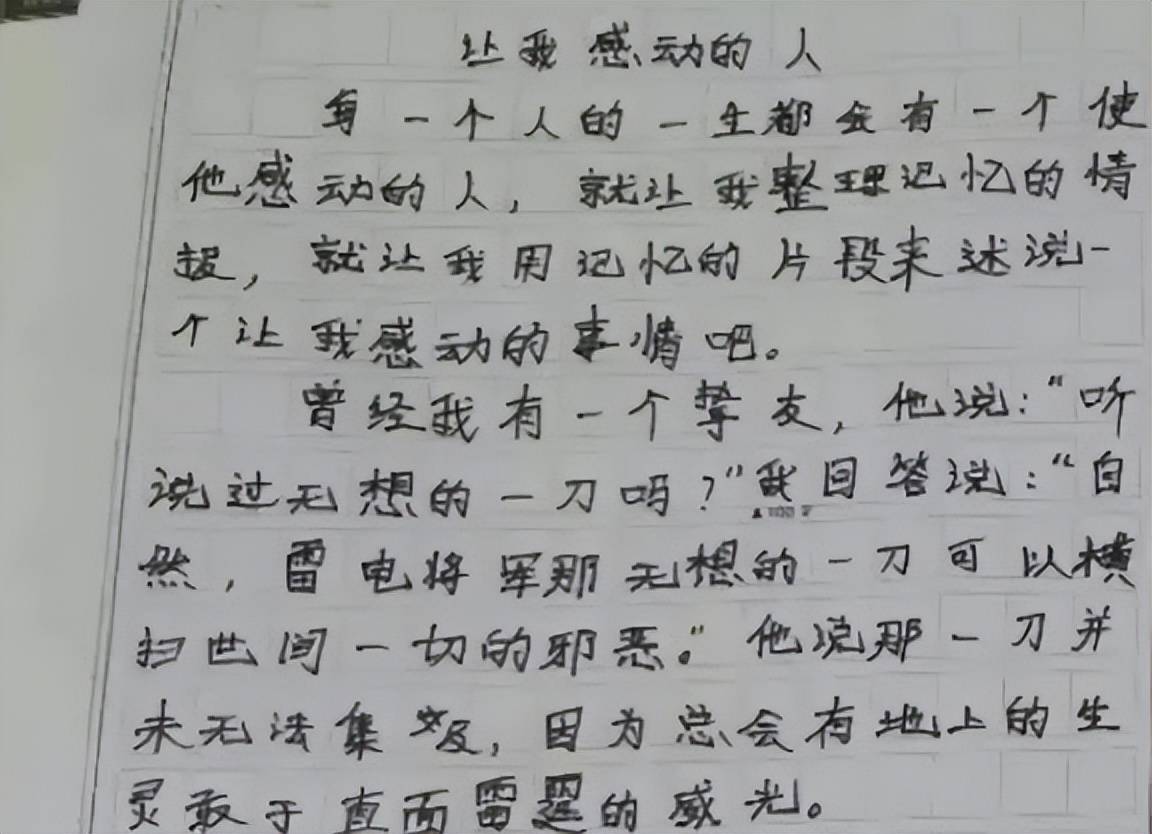 让我感动的人
每一个人的一生都会有一个使
他感动的人，就让我整理记忆的情
报，就让我用记忆的片段来述说一
个让我感动的事情吧。
曾经我有一个挚友，他说：“听
说过无想的一刀吗？”我回答说：“自
然，雷电将军那无想的一刀可以横
扫世间一切的邪恶。”他说那一刀并
未无法集及，因为总会有地上的生
灵敢于直面雷霆的威光。